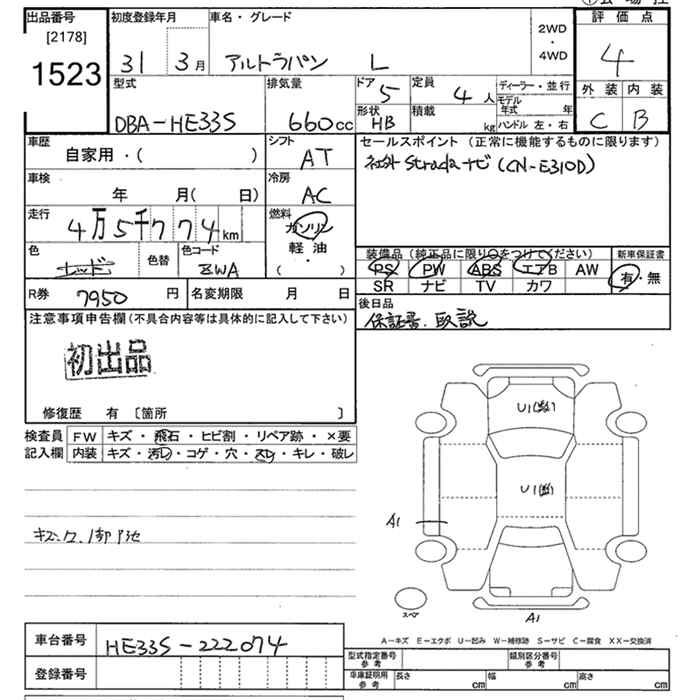 出品番号
[2178]
1523
初度登録年月
31 3月
車名・グレード
アルトラパン L
2WD
・
4WD
評価点
4
外装 内装
C B
型式
DBA-HE33S
排気量
660cc
ドア
5
定員
4人
形状
HB
積載
kg
ディーラー・並行
モデル年式 年
ハンドル 左・右
車歴
自家用・( )
シフト
AT
車検
年 月( 日)
冷房
AC
走行
4万5千774km
燃料
ガソリン
軽油
・
( )
色
レッド
色替
色コード
ZWA
R券 7950円
名変期限 月 日
セールスポイント (正常に機能するものに限ります)
社外 Stradaナビ (CN-E310D)
装備品(純正品に限り○をつけてください)
PS PW ABS エアB AW
SR ナビ TV カワ
新車保証書
有・無
後日品
保証書、取説
注意事項申告欄(不具合内容等は具体的に記入して下さい)
初出品
修復歴 有 〔箇所 〕
検査員
記入欄
FW キズ・飛石・ヒビ割・リペア跡・×要
内装 キズ・汚れ・コゲ・穴・スレ・キレ・破レ
U1
U1
A1
スペア
A1
A-キズ E-エクボ U-凹み W-補修跡 S-サビ C-腐食 XX-交換済
車台番号
HE33S-222074
登録番号
型式指定番号
参考
類別区分番号
参考
車庫証明用
参考
長さ cm
幅 cm
高さ cm